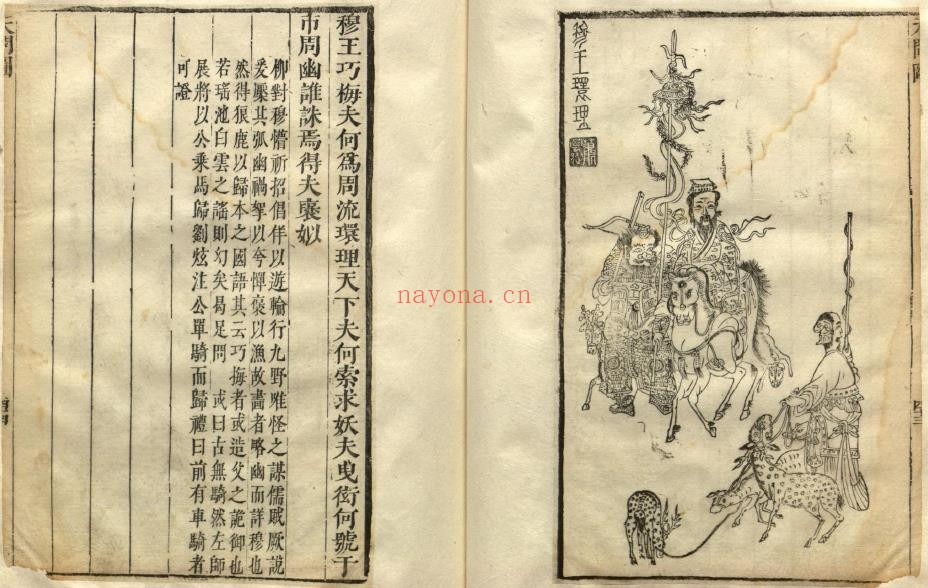 穆王環理
穆王巧梅夫何爲周流環理天下夫何索求妖夫曳衒何號于
市周幽誰誅焉得夫褒姒
柳對穆懵祈招倡佯以遊輪行九野唯怪之謀儒賊厥說
爰檿其弧幽禍挐以夸憚褒以漁故畵者略幽而詳穆也
然得狼鹿以歸本之國語其云巧挴者或造父之詭御也
若瑤池白雲之謡則幻矣曷足問 或曰古無騎然左師
展將以公乘馬歸劉炫注公單騎而歸禮曰前有車騎者
可證
nayona.cn